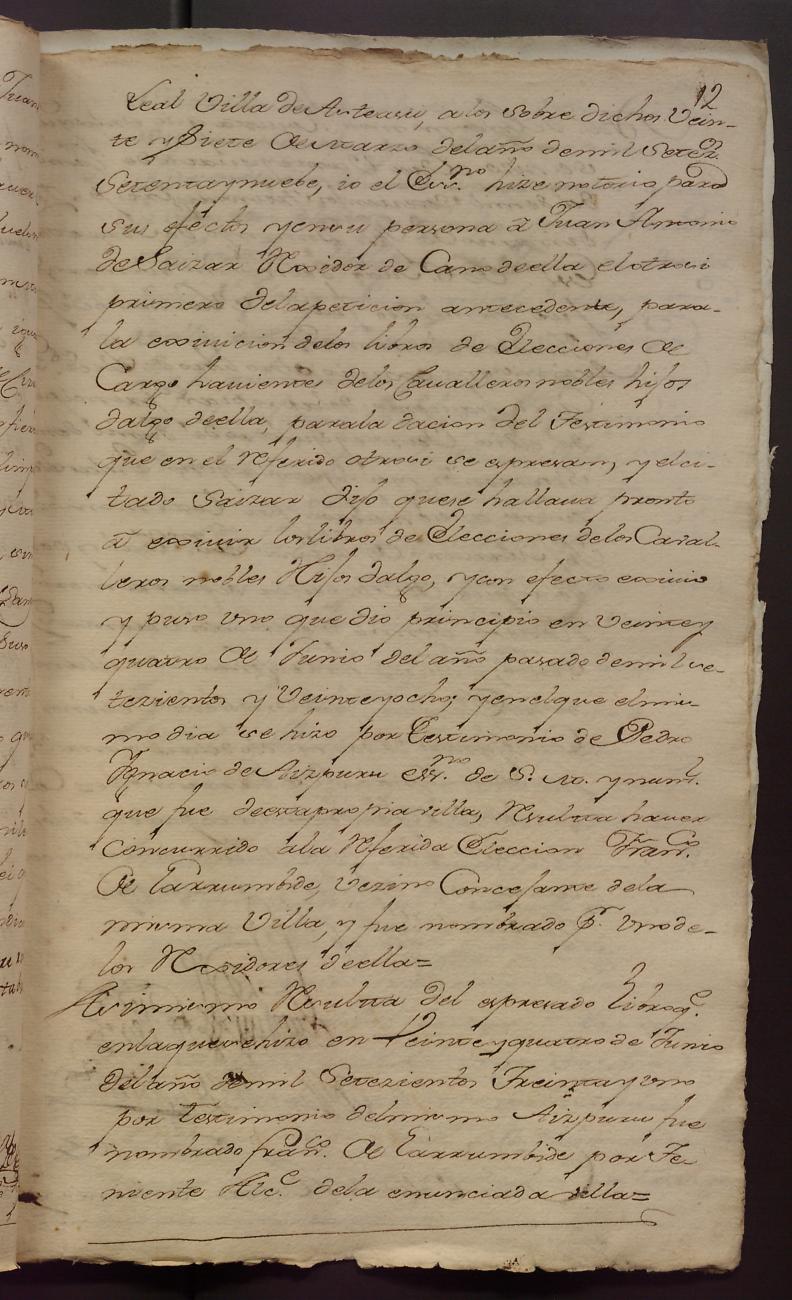 12
Leal Villa de Asteasu, a los sobre dichos Vein-
te y Siete de Marzo del año de mil Setez.s
Setenta y nuebe, io el Ess.no hize notorio para
sus efectos y en su persona a Juan Antonio
de Saizar Rexidor de Cano de ella el otrosi
primero de la peticion antecedente, para-
la exsivicion de los libros de Elecciones de
Cargo havientes de los Cavalleros nobles hijos
dalgo de ella, para la dacion del Testimonio
que en el referido otrosi se espresan, y el ci-
tado Saizar dijo que se hallava pronto
a exsivir los libros de Elecciones de los Caval-
leros nobles Hijos dalgo, y con efecto exsivio
y puso uno que dio principio en Veinte y
quatro de Junio del año pasado de mil se-
tezientos y Veinte y ocho; y en el que el mis-
mo dia se hizo por Testimonio de Pedro
Ignacio de Aizpuru ess.no de S. M. y num.l
que fue de esta propria villa, Resulta haver
Concurrido a la Referida Eleccion Fran.co
de Larrumbide, Vezino Concejante de la
misma Villa, y fue nombrado p.r Uno de-
los Rexidores de ella=
Asimismo Resulta del espresado Libro q.e
en la que se hizo en Veinte y quatro de Junio
del año de mil Setezientos Treinta y uno
por testimonio del mismo Aizpuru fue
nombrado fran.co de Larrumbide por Te-
niente Alc.e de la enunciada villa=